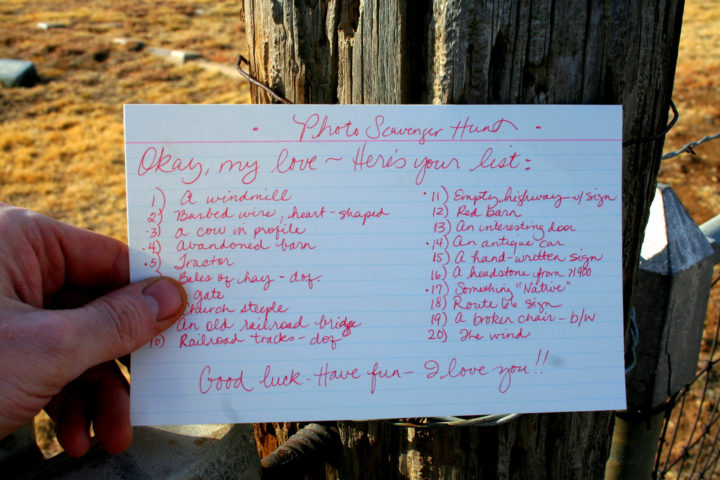 · Photo Scavenger Hunt ·
Okay, my love ~ Here's your list:
1) A windmill
2) Barbed wire, heart-shaped
·3) a cow in profile
·4) Abandoned barn
·5) Tractor
Bales of hay - dof.
gate
Church steeple
An old railroad bridge
10) Railroad tracks - dof
·11) Empty highway - w/ sign
12) Red barn
13) An interesting door
·14) An antique car
15) A hand-written sign
16) A headstone from >1900
·17) Something "Native"
18) Route 66 sign
19) A broken chair - b/w
20) The wind
Good luck - Have fun - I love you!!